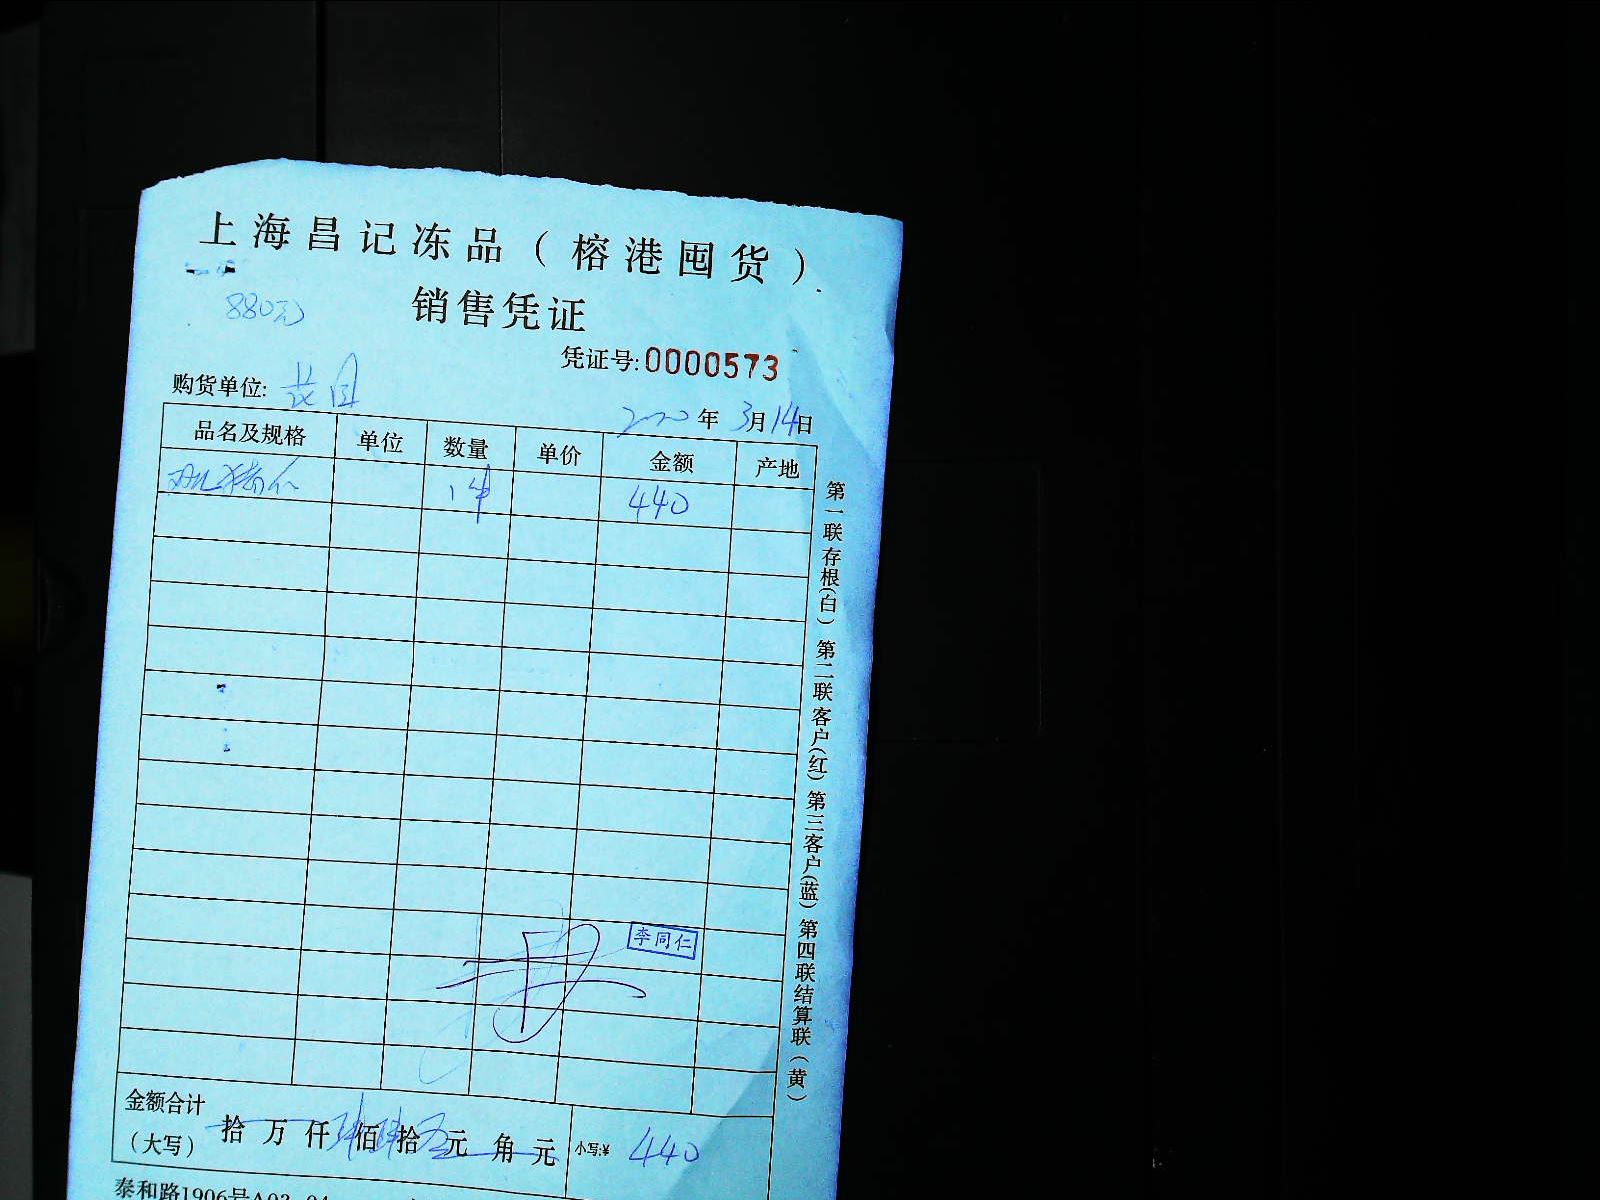 上海昌记冻品（榕港囤货）
880元
销售凭证
凭证号:0000573
购货单位:
2020年3月14日
品名及规格 单位 数量 单价 金额 产地
1件 440
第一联存根(白) 第二联客户(红) 第三客户(蓝) 第四联结算联(黄)
李同仁
金额合计
(大写) 拾万仟肆佰肆拾元角元 小写:¥ 440
泰和路1906号A03-04